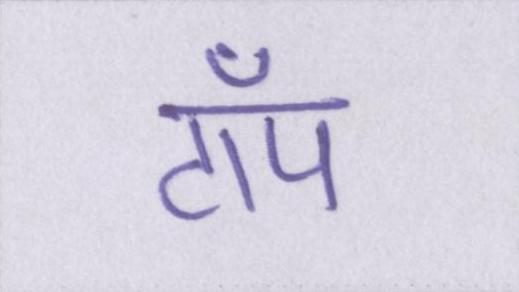 टाँप